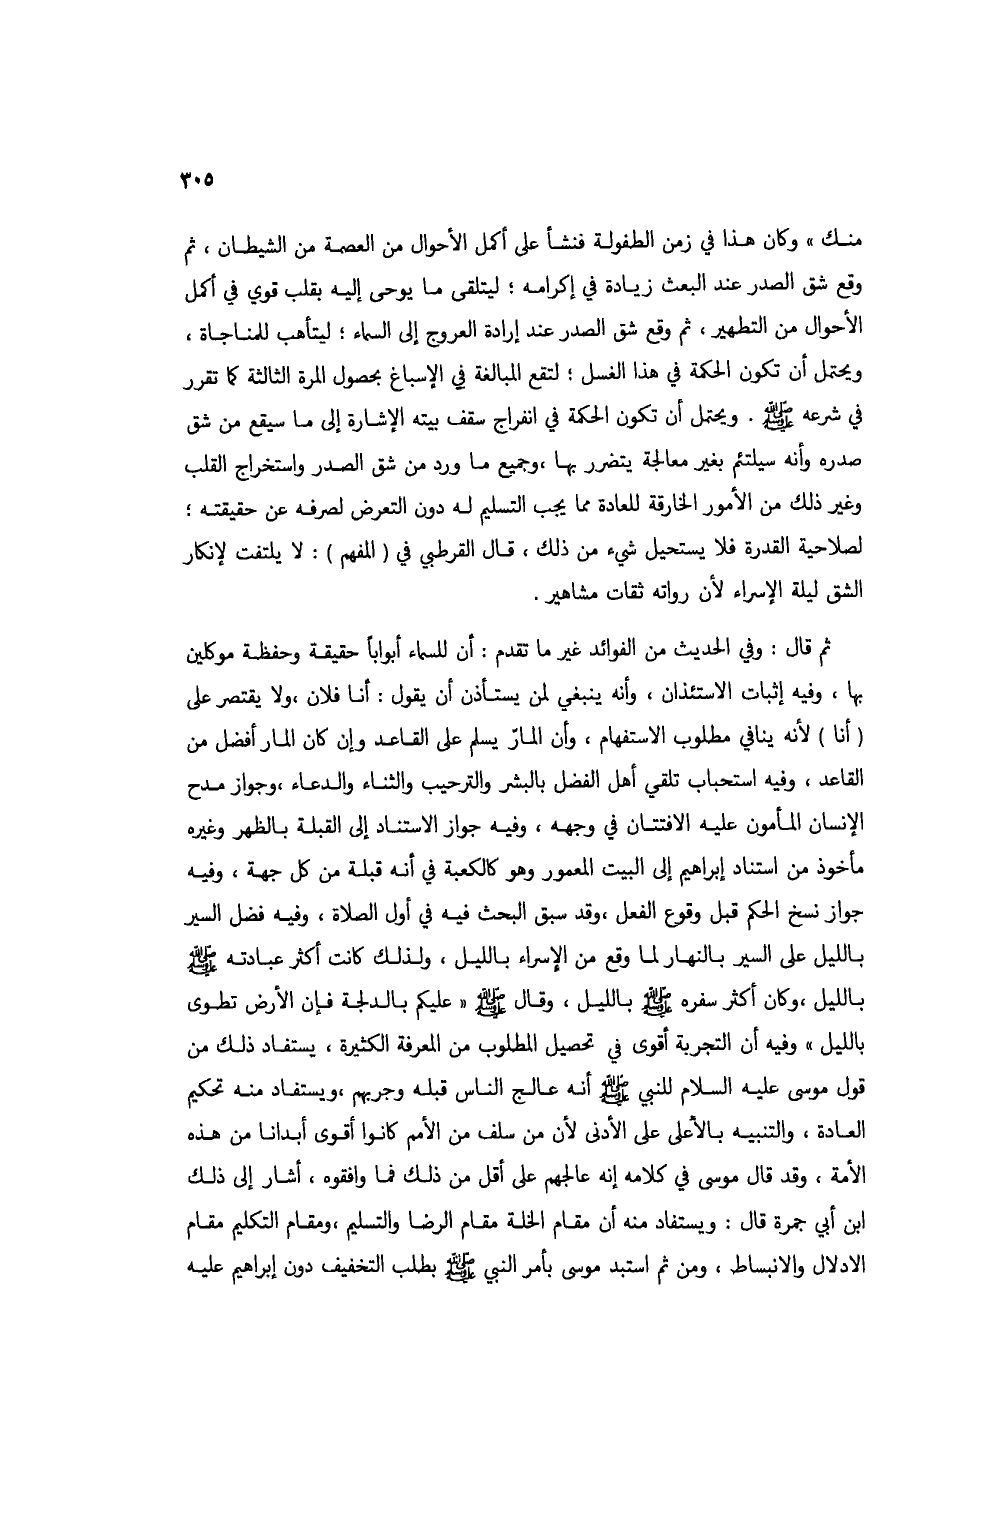 ٣٠٥
منك » وكان هذا في زمن الطفولة فنشأ على أكمل الأحوال من العصمة من الشيطان ، ثم
وقع شق الصدر عند البعث زيادة في إكرامه ؛ ليتلقى ما يوحى إليه بقلب قوي في أكمل
الأحوال من التطهير ، ثم وقع شق الصدر عند إرادة العروج إلى السماء ؛ ليتأهب للمناجاة ،
ويحتمل أن تكون الحكمة في هذا الغسل ؛ لتقع المبالغة في الإسباغ بحصول المرة الثالثة كما تقرر
في شرعه ﷺ . ويحتمل أن تكون الحكمة في انفراج سقف بيته الإشارة إلى ما سيقع من شق
صدره وأنه سيلتئم بغير معالجة يتضرر بها ،وجميع ما ورد من شق الصدر واستخراج القلب
وغير ذلك من الأمور الخارقة للعادة مما يجب التسليم له دون التعرض لصرفه عن حقيقته ؛
لصلاحية القدرة فلا يستحيل شيء من ذلك ، قال القرطبي في ( المفهم ) : لا يلتفت لإنكار
الشق ليلة الإسراء لأن رواته ثقات مشاهير .
ثم قال : وفي الحديث من الفوائد غير ما تقدم : أن للسماء أبواباً حقيقة وحفظة موكلين
بها ، وفيه إثبات الاستئذان ، وأنه ينبغي لمن يستأذن أن يقول : أنا فلان ،ولا يقتصر على
( أنا ) لأنه ينافي مطلوب الاستفهام ، وأن المارّ يسلم على القاعد وإن كان المار أفضل من
القاعد ، وفيه استحباب تلقي أهل الفضل بالبشر والترحيب والثناء والدعاء ،وجواز مدح
الإنسان المأمون عليه الافتتان في وجهه ، وفيه جواز الاستناد إلى القبلة بالظهر وغيره
مأخوذ من استناد إبراهيم إلى البيت المعمور وهو كالكعبة في أنه قبلة من كل جهة ، وفيه
جواز نسخ الحكم قبل وقوع الفعل ،وقد سبق البحث فيه في أول الصلاة ، وفيه فضل السير
بالليل على السير بالنهار لما وقع من الإسراء بالليل ، ولذلك كانت أكثر عبادته ﷺ
بالليل ،وكان أكثر سفره ﷺ بالليل ، وقال ﷺ « عليكم بالدلجة فإن الأرض تطوى
بالليل » وفيه أن التجربة أقوى في تحصيل المطلوب من المعرفة الكثيرة ، يستفاد ذلك من
قول موسى عليه السلام للنبي ﷺ أنه عالج الناس قبله وجربهم ،ويستفاد منه تحكيم
العادة ، والتنبيه بالأعلى على الأدنى لأن من سلف من الأمم كانوا أقوى أبدانا من هذه
الأمة ، وقد قال موسى في كلامه إنه عالجهم على أقل من ذلك فما وافقوه ، أشار إلى ذلك
ابن أبي جمرة قال : ويستفاد منه أن مقام الخلة مقام الرضا والتسليم ،ومقام التكليم مقام
الادلال والانبساط ، ومن ثم استبد موسى بأمر النبي ﷺ بطلب التخفيف دون إبراهيم عليه